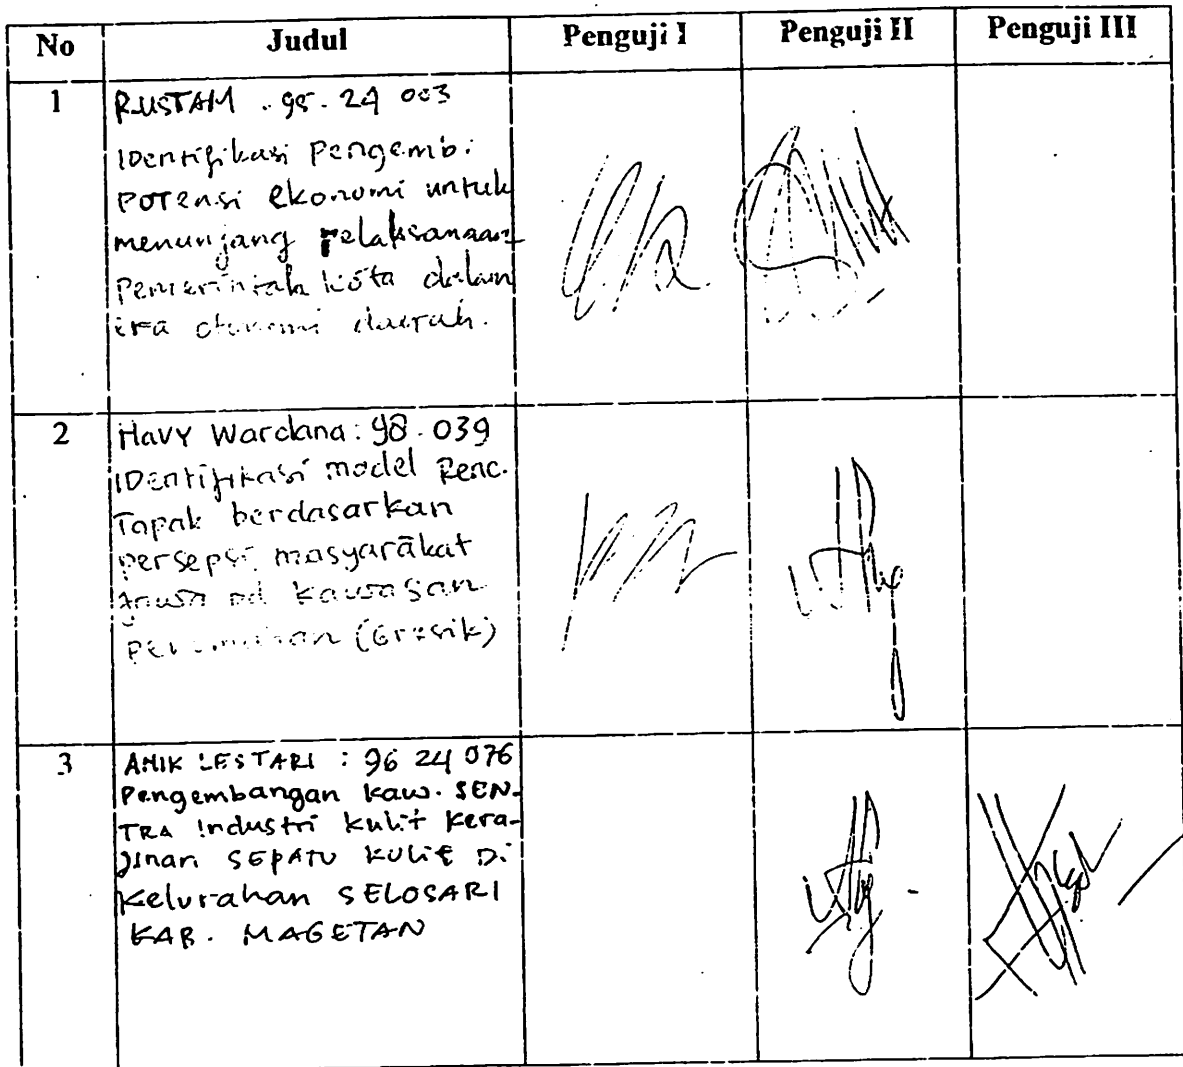 No Judul Penguji I Penguji II Penguji III
1 RUSTAM . 95. 24 003
IDentifikasi Pengemb.
POTensi ekonomi untuk
menunjang pelaksanaan
Pemerintah kota dalam
era otonomi daerah.
2 Havy Wardana : 98. 039
IDentifikasi model Renc.
Tapak berdasarkan
persepsi masyarakat
kawasan
(Gresik)
3 ANIK LESTARI : 96 24 076
Pengembangan kaw. SEN-
TRA Industri kulit kera-
jinan SEPATU KULIt Di
Kelurahan SELOSARI
KAB. MAGETAN